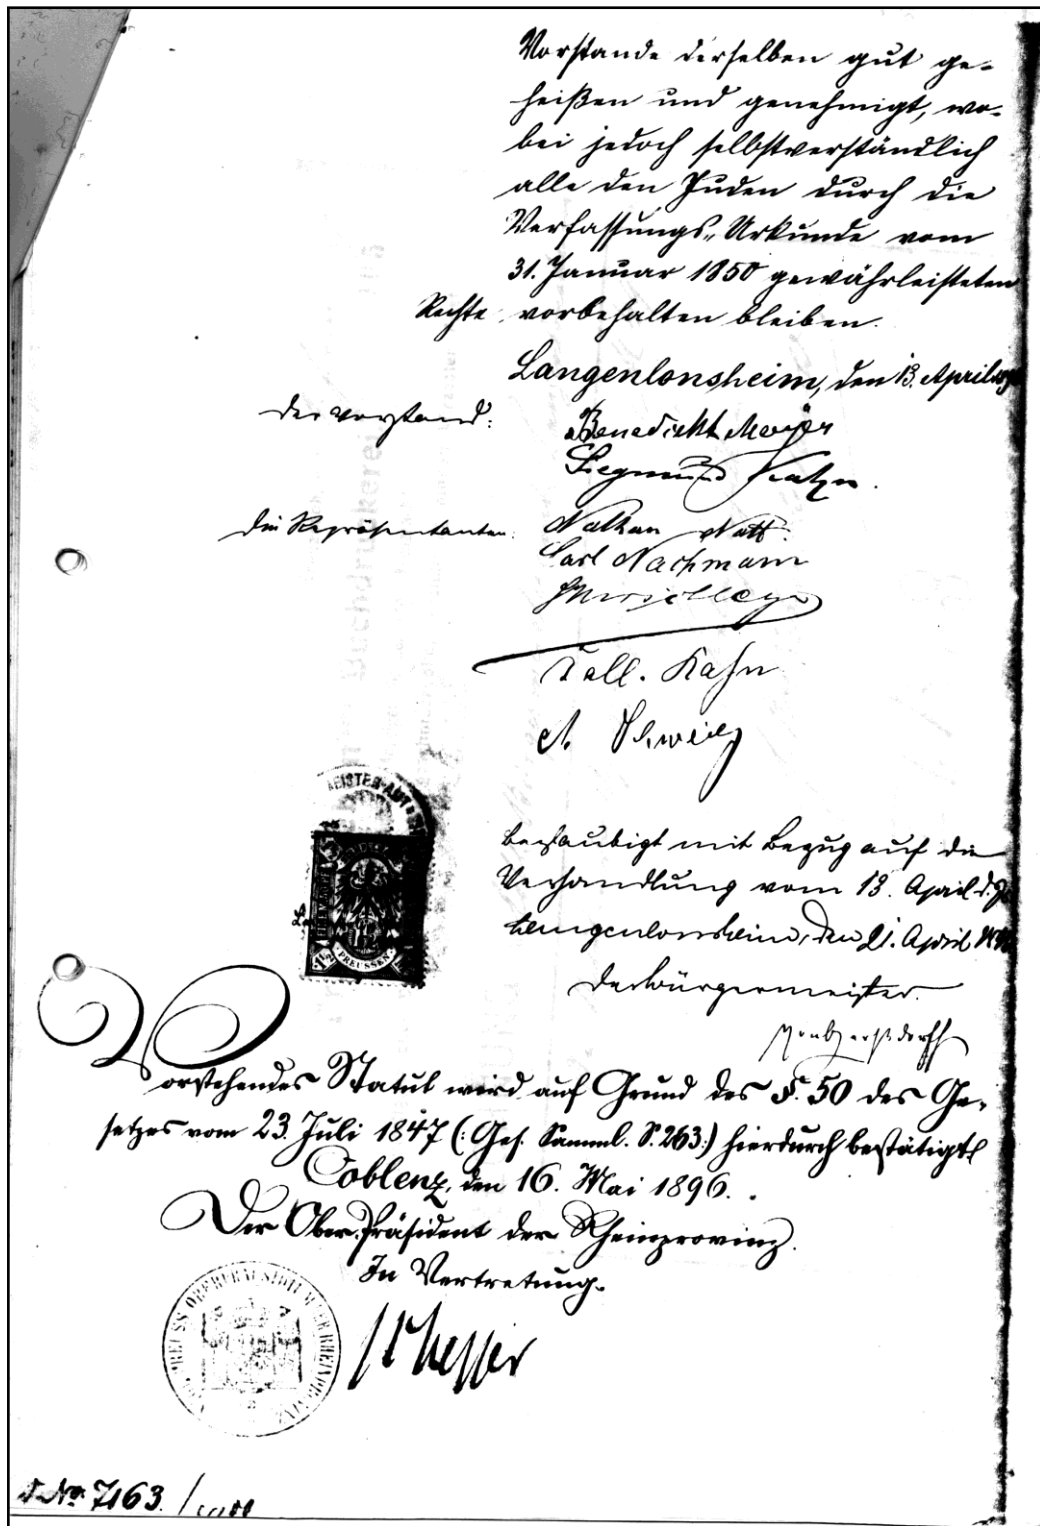 Vorstande derselben gut ge-
heißen und genehmigt, wo-
bei jedoch selbstverständlich
alle den Juden durch die
Verfassungs-Urkunde vom
31. Januar 1850 gewährleisteten
Rechte vorbehalten bleiben.
Langenlonsheim, den 13. April
Der Vorstand:
Benedickt Mayer
Siegmund Kahn.
Die Repräsentanten:
Nathan Natt.
Carl Nachmann
Kahn
A.
beglaubigt mit Bezug auf die
Verhandlung vom 13. April d. Js
Langenlonsheim, den 21. April
Der Bürgermeister.
PREUSSEN
Vorstehendes Statut wird auf Grund des §. 50 des Ge-
setzes vom 23. Juli 1847 (: Ges. Samml. S. 263:) hierdurch bestätigt.
Coblenz, den 16. Mai 1896.
Der Ober-Präsident der Rheinprovinz.
In Vertretung.
No 7163.